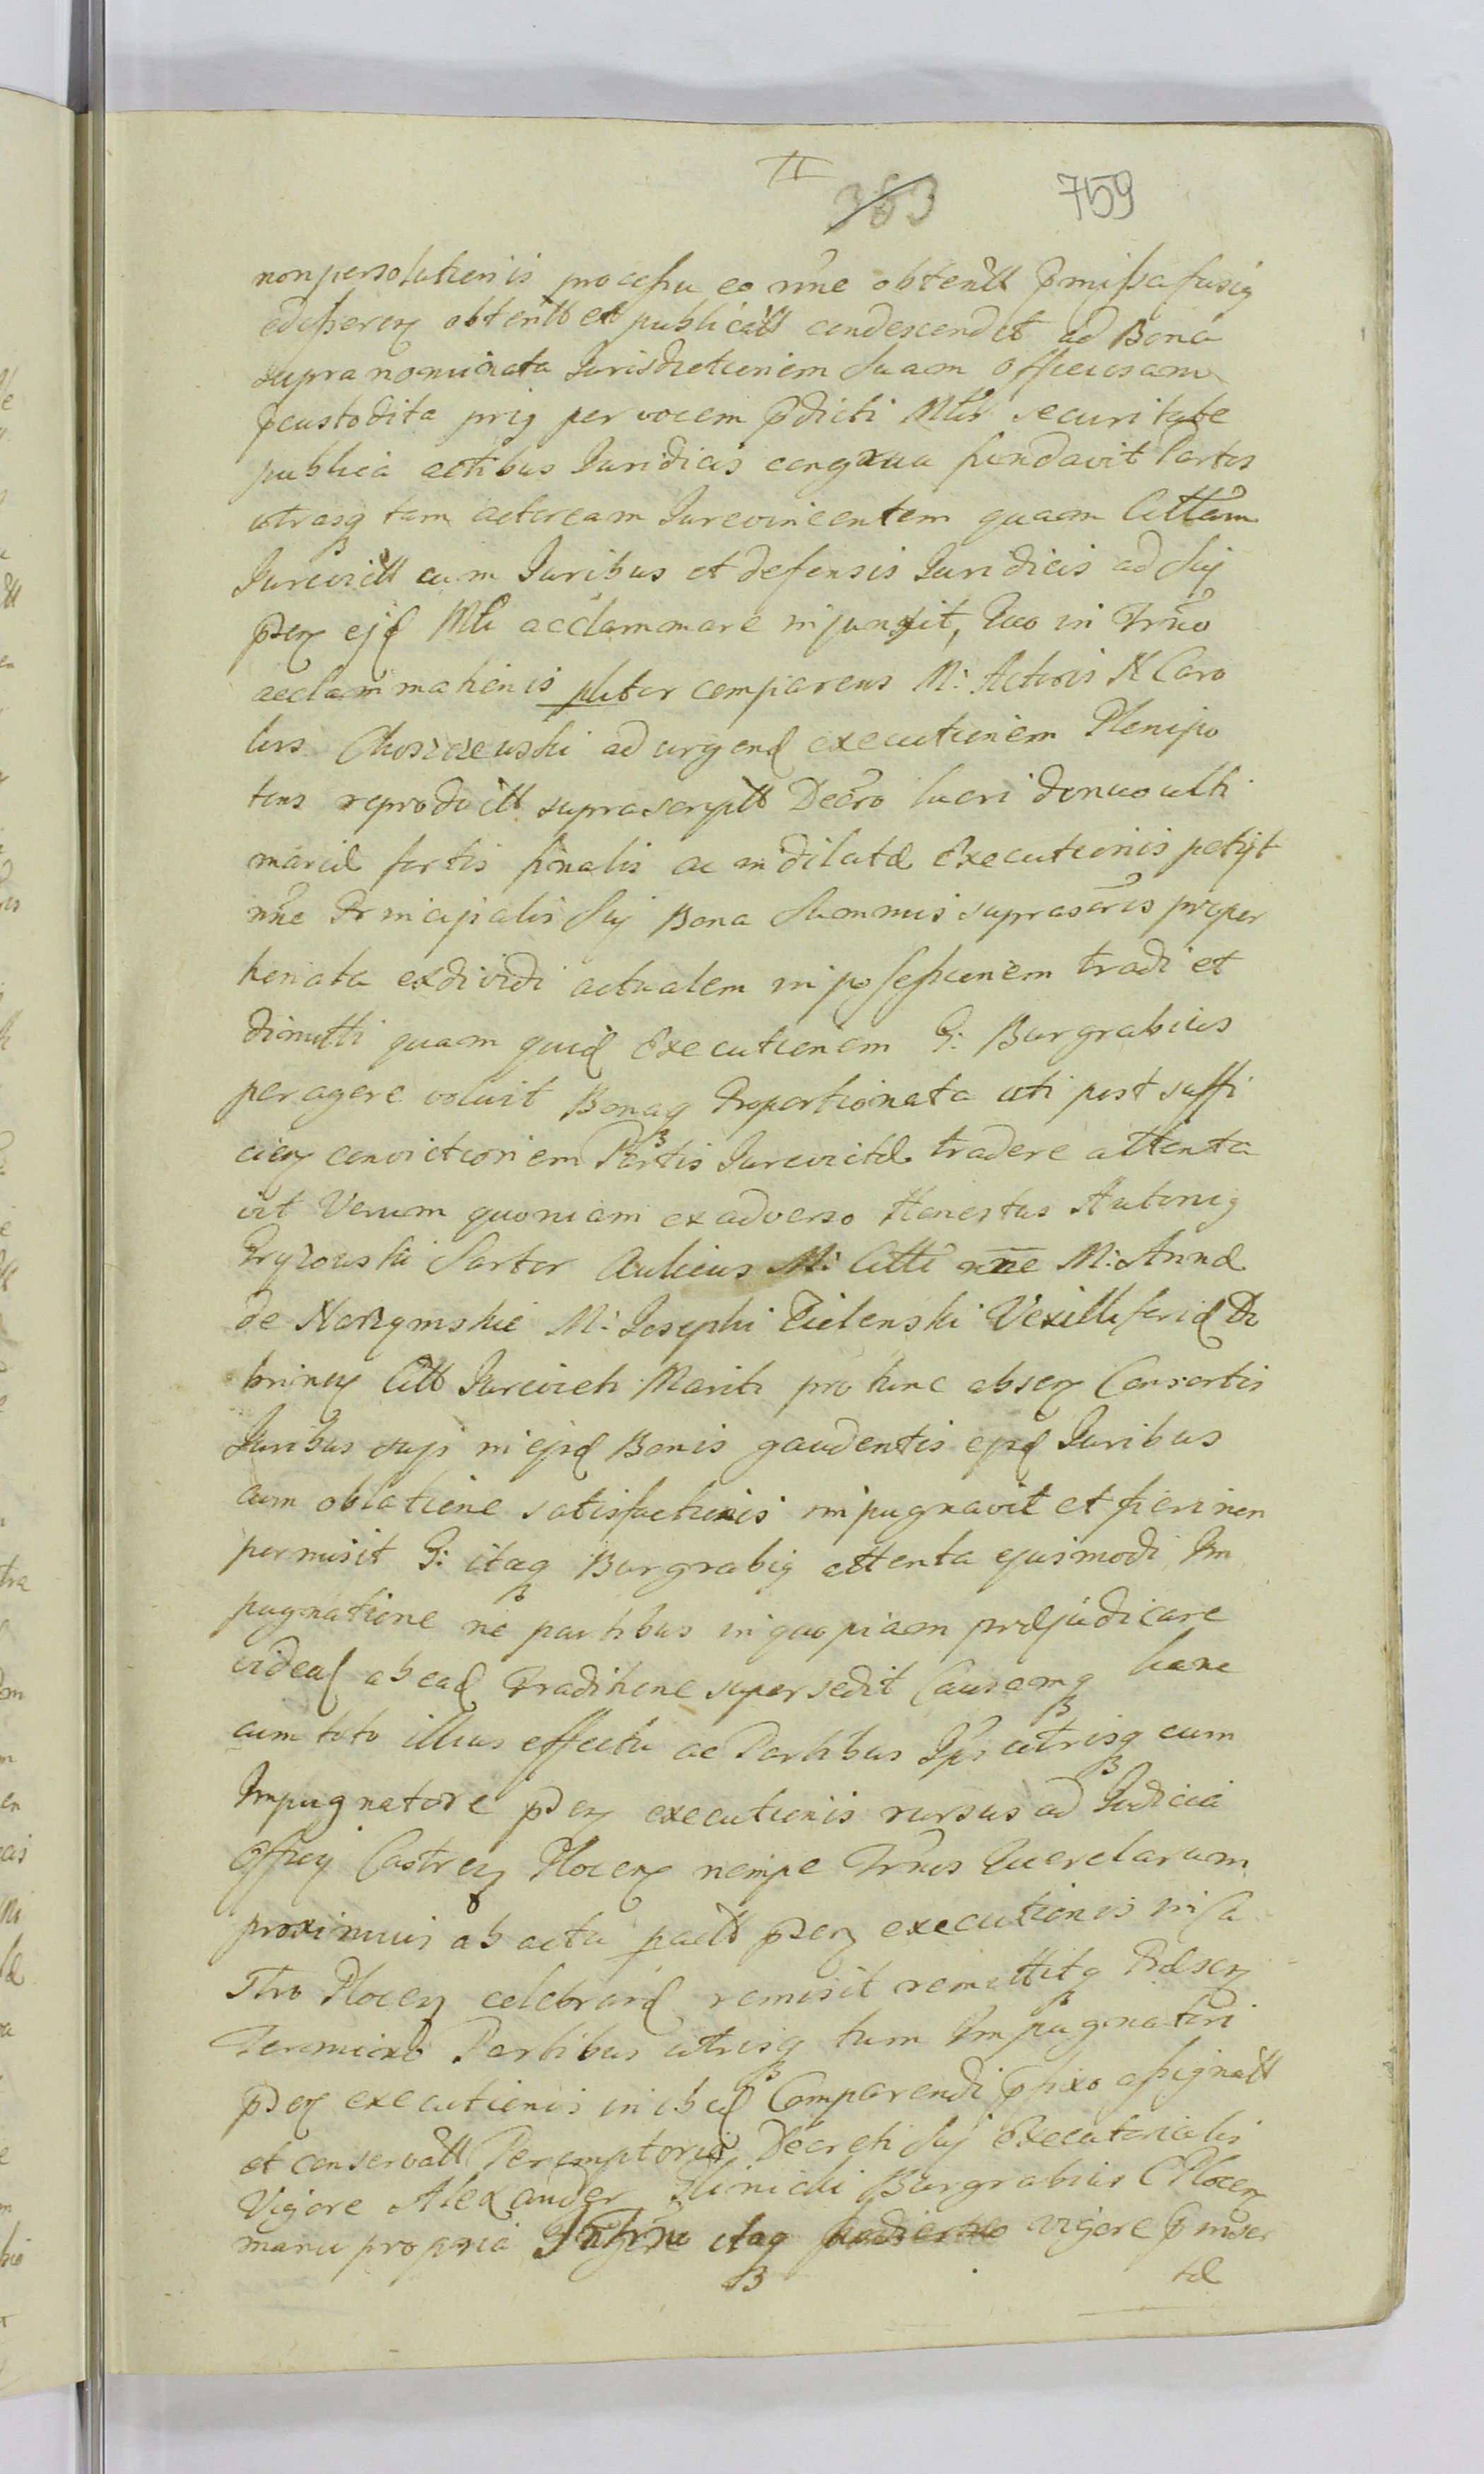 II
363 759
nonpersolutionis processu eo nne obtentt pmissa fusiq
edisseren obtentt et publicatt condescendit ad Bona
supra nominata Jurisdictionem Suam officiosam
pcustodita priq per vocem pdicti Mtlis securitate
publica actibus Juridicis congrua fundavit Partes
utrasq tam actoream Jurevincentem quam Cittam
Jurevictt cum Juribus et defensis Juridicis ad Sui
psen ejd Mtli acclammare injunxit, Quo in Trno
acclammationis pltter comparens M: Actoris N Caro
lus Choszczewski ad urgend executionem Plenipo
tens reproductt suprascriptt Decro lucri donuo ulti
mariæ sortis finalis ac indilatæ Executionis petijt
nne Principalis Sui Bona Summis suprascris propor
tionata exdividi actualem in possessionem tradi et
dimitti quam quid Executionem G: Burgrabius
peragere voluit Bonaq Proportionata uti post suffi
cien convictionem Partis Jurevictæ tradere attenta
vit Verum quoniam ex adverso Honestus Antoniq
Pryzowski Sartor Aulicus M: Citti nne M: Annæ
de Narzymskie M: Josephi Zielenski Vexilliferid Do
brinen Citt Jurevicti Mariti pro tunc absen Consortis
Juribus suis in ejsd Bonis gaudentis ejsd Juribus
cum oblatione satisfactionis impugnavit et fieri non
permisit G: itaq Burgrabiq attenta ejusmodi Im
pugnatione ne partibus in quopiam præjudicare
videat ab ead Traditione supersedit Causamq hanc
cum toto illius effectu ac Partibus Ipsi utrisq cum
Impugnatore psen executionis rursus ad Judicia
Officij Castren Plocen nempe Trnos Querelarum
proximius ab actu pactt psen executionis in Ca
stro Plocen celebrand remisit remittitq Præsen
Terminū Partibus utrisq tum Impugnatori
psen executionis in ibid Comparendi pfixo assignatt
et conservatt Peremptorie Decreti Sui Executorialis
Vigore Alexander Ilinicki Burgrabius C Plocen
manu propria In Trno itaq hodierno vigore pmser
tæ